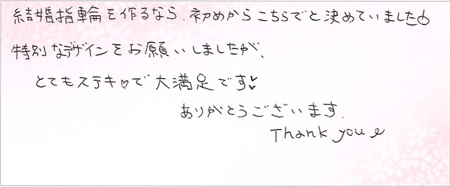 結婚指輪を作るなら、初めからこちらでと決めていました
特別なデザインをお願いしましたが、
とてもステキ♡で大満足です♥
ありがとうございます。
Thank you